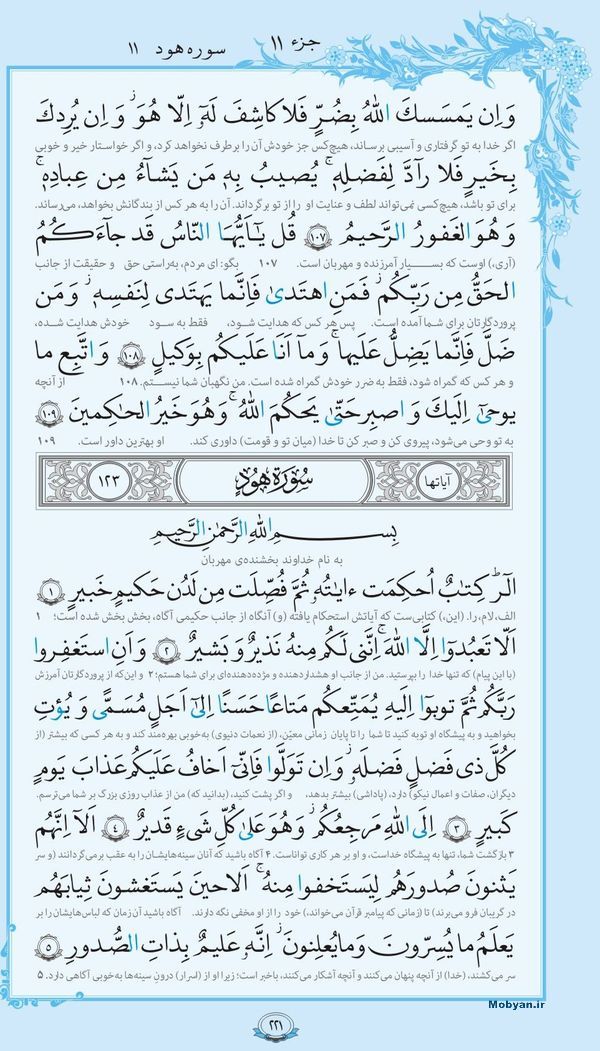 جزء ۱۱ سوره هود ۱۱
وَ اِن یَمسَسكَ اللّٰهُ بِضُرٍّ فَلا کاشِفَ لَهٗ اِلّا هُوَ ۖ وَ اِن یُرِدكَ
اگر خدا به تو گرفتاری و آسیبی برساند، هیچ‌کس جز خودش آن را برطرف نخواهد کرد، و اگر خواستار خیر و خوبی
بِخَیرٍ فَلا رآدَّ لِفَضلِهٖ ۚ یُصیبُ بِهٖ مَن یَشآءُ مِن عِبادِهٖ ۚ
برای تو باشد، هیچ‌کسی نمی‌تواند لطف و عنایت او را از تو برگرداند. آن را به هر کس از بندگانش بخواهد، می‌رساند.
وَ هُوَ الغَفورُ الرَّحیمُ ﴿۱۰۷﴾ قُل یٰاَیُّهَا النّاسُ قَد جآءَکُمُ
(آری،) اوست که بسیار آمرزنده و مهربان است. ۱۰۷ بگو: ای مردم، به‌راستی حق و حقیقت از جانب
الحَقُّ مِن رَبِّکُم ۖ فَمَنِ اهتَدیٰ فَاِنَّما یَهتَدی لِنَفسِهٖ ۖ وَ مَن
پروردگارتان برای شما آمده است. پس هر کس که هدایت شود، فقط به سود خودش هدایت شده،
ضَلَّ فَاِنَّما یَضِلُّ عَلَیها ۖ وَ مآ اَنَا عَلَیکُم بِوَکیلٍ ﴿۱۰۸﴾ وَ اتَّبِع ما
و هر کس که گمراه شود، فقط به ضرر خودش گمراه شده است. من نگهبان شما نیستم. ۱۰۸ از آنچه
یوحیٰٓ اِلَیكَ وَ اصبِر حَتّیٰ یَحکُمَ اللّٰهُ ۚ وَ هُوَ خَیرُ الحاکِمینَ ﴿۱۰۹﴾
به تو وحی می‌شود، پیروی کن و صبر کن تا خدا (میان تو و قومت) داوری کند. او بهترین داور است. ۱۰۹
آیاتها سُورَةُ هُودٍ ۱۲۳
بِسمِ اللّٰهِ الرَّحمٰنِ الرَّحیمِ
به نام خداوند بخشنده‌ی مهربان
الٓرٰ ۚ کِتٰبٌ اُحکِمَت ءایٰتُهٗ ثُمَّ فُصِّلَت مِن لَدُن حَکیمٍ خَبیرٍ ﴿۱﴾
الف، لام، را. (این،) کتابی‌ست که آیاتش استحکام یافته (و) آنگاه از جانب حکیمی آگاه، بخش بخش شده است؛ ۱
اَلّا تَعبُدوٓا اِلَّا اللّٰهَ ۚ اِنَّنی لَکُم مِنهُ نَذیرٌ وَ بَشیرٌ ﴿۲﴾ وَ اَنِ استَغفِروا
(با این پیام) که تنها خدا را بپرستید. من از جانب او هشداردهنده و مژده‌دهنده‌ای برای شما هستم؛ ۲ و این‌که از پروردگارتان آمرزش
رَبَّکُم ثُمَّ توبوٓا اِلَیهِ یُمَتِّعکُم مَتاعًا حَسَنًا اِلیٰٓ اَجَلٍ مُسَمًّی وَ یُؤتِ
بخواهید و به پیشگاه او توبه کنید تا شما را تا پایان زمانی معیّن، (از نعمات دنیوی) به‌خوبی بهره‌مند کند و به هر کسی که بیشتر (از
کُلَّ ذی فَضلٍ فَضلَهٗ ۖ وَ اِن تَوَلَّوا فَاِنّیٓ اَخافُ عَلَیکُم عَذابَ یَومٍ
دیگران، صفات و اعمال نیکو) دارد، (پاداشی) بیشتر بدهد. و اگر پشت کنید، (بدانید که) من از عذاب روزی بزرگ بر شما می‌ترسم.
کَبیرٍ ﴿۳﴾ اِلَی اللّٰهِ مَرجِعُکُم ۖ وَ هُوَ عَلیٰ کُلِّ شَیءٍ قَدیرٌ ﴿۴﴾ اَلآ اِنَّهُم
۳ بازگشت شما، تنها به پیشگاه خداست، و او بر هر کاری تواناست. ۴ آگاه باشید که آنان سینه‌هایشان را به عقب برمی‌گردانند (و سر
یَثنونَ صُدورَهُم لِیَستَخفوا مِنهُ ۚ اَلا حینَ یَستَغشونَ ثیابَهُم
در گریبان فرو می‌برند) تا (زمانی که پیامبر قرآن می‌خواند،) خود را از او مخفی نگه دارند. آگاه باشید آن زمان که لباس‌هایشان را بر
یَعلَمُ ما یُسِرّونَ وَ ما یُعلِنونَ ۚ اِنَّهٗ عَلیمٌ بِذاتِ الصُّدورِ ﴿۵﴾
سر می‌کشند، (خدا) از آنچه پنهان می‌کنند و آنچه آشکار می‌کنند، باخبر است؛ زیرا او از (اسرار) درونِ سینه‌ها به‌خوبی آگاهی دارد. ۵
Mobyan.ir
۲۲۱